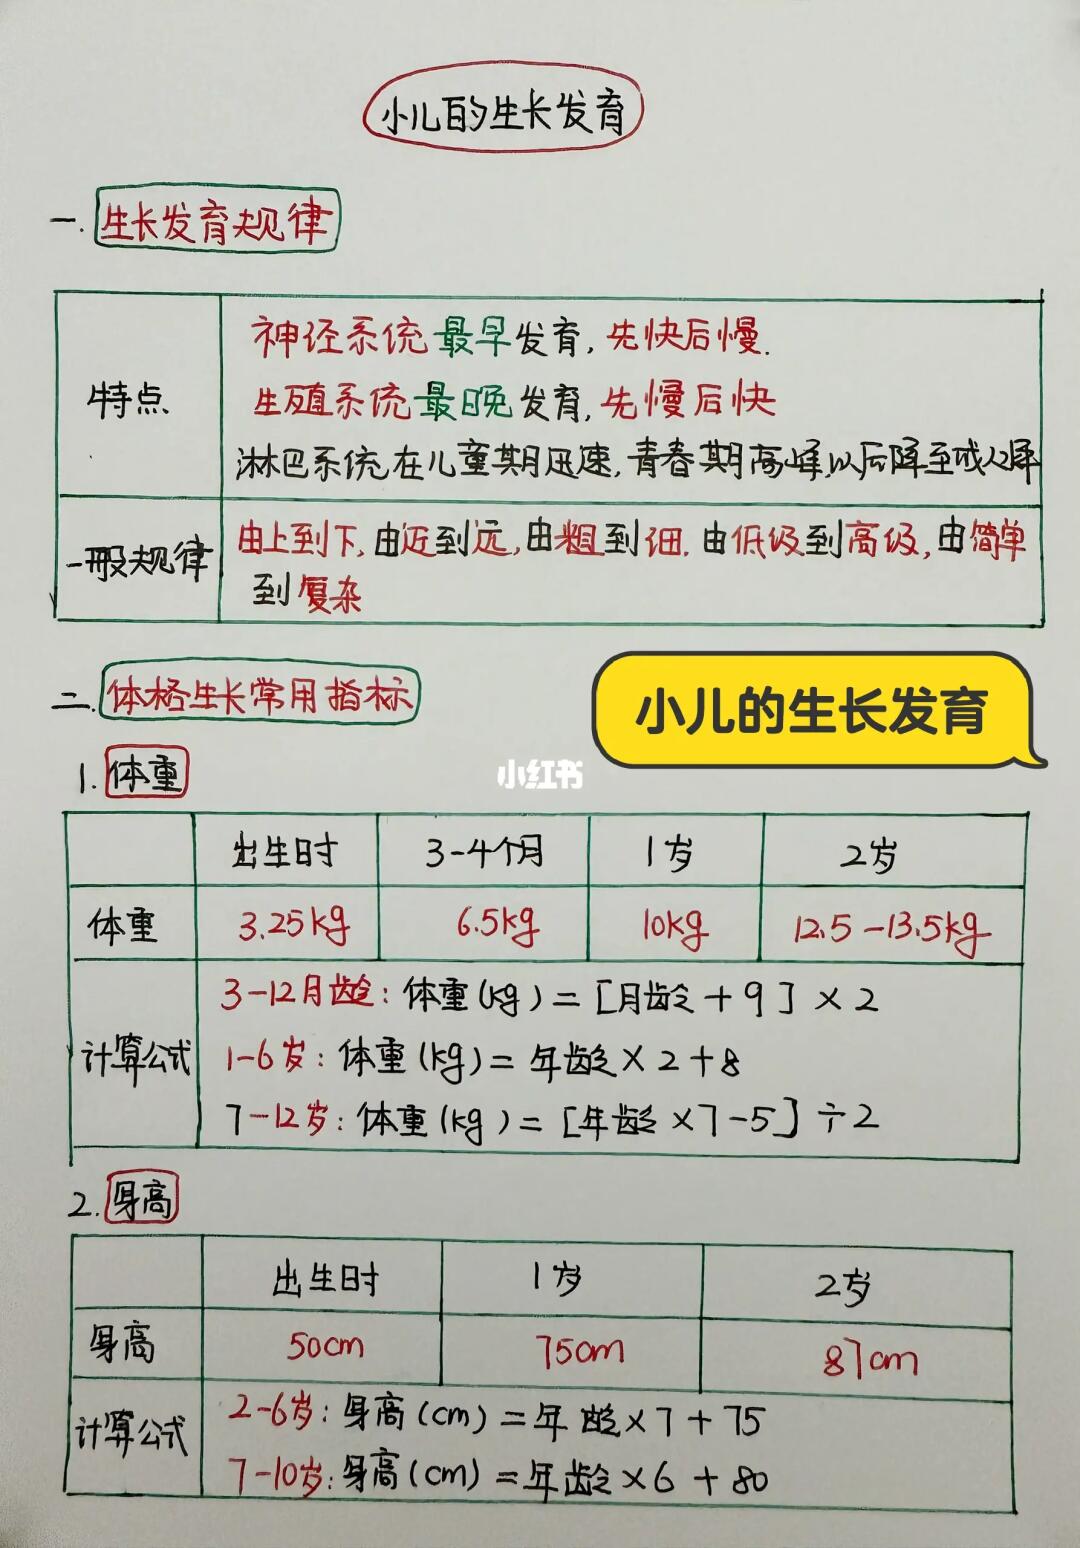 小儿的生长发育
一.生长发育规律
特点
神经系统最早发育,先快后慢.
生殖系统最晚发育,先慢后快
淋巴系统在儿童期迅速,青春期高峰,以后降至成人
一般规律
由上到下,由近到远,由粗到细.由低级到高级,由简单
到复杂
二.体格生长常用指标
小儿的生长发育
1.体重
小红书
出生时 3-4个月 1岁 2岁
体重 3.25kg 6.5kg 10kg 12.5-13.5kg
计算公式
3-12月龄:体重(kg)=[月龄+9]×2
1-6岁:体重(kg)=年龄×2+8
7-12岁:体重(kg)=[年龄×7-5]÷2
2.身高
出生时 1岁 2岁
身高 50cm 75cm 87cm
计算公式
2-6岁:身高(cm)=年龄×7+75
7-10岁:身高(cm)=年龄×6+80